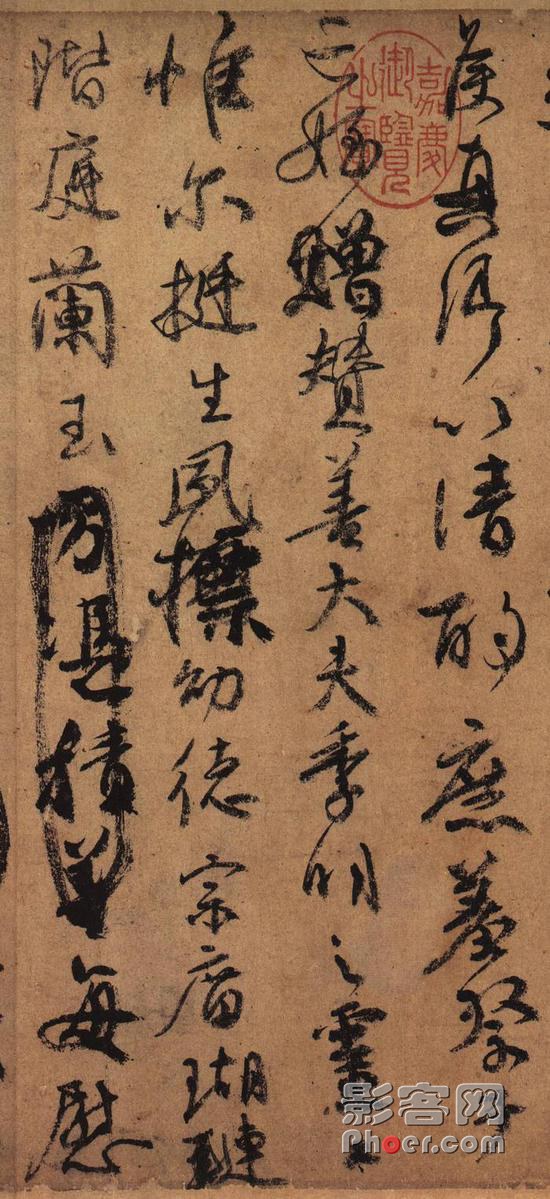 侯真卿以清酌庶羞祭于
亡姪贈贊善大夫季明之靈
惟尔挺生夙標幼德宗庿瑚璉
階庭蘭玉方憑積善每慰
嘉慶御覽之寶
影客网
Phoer.com